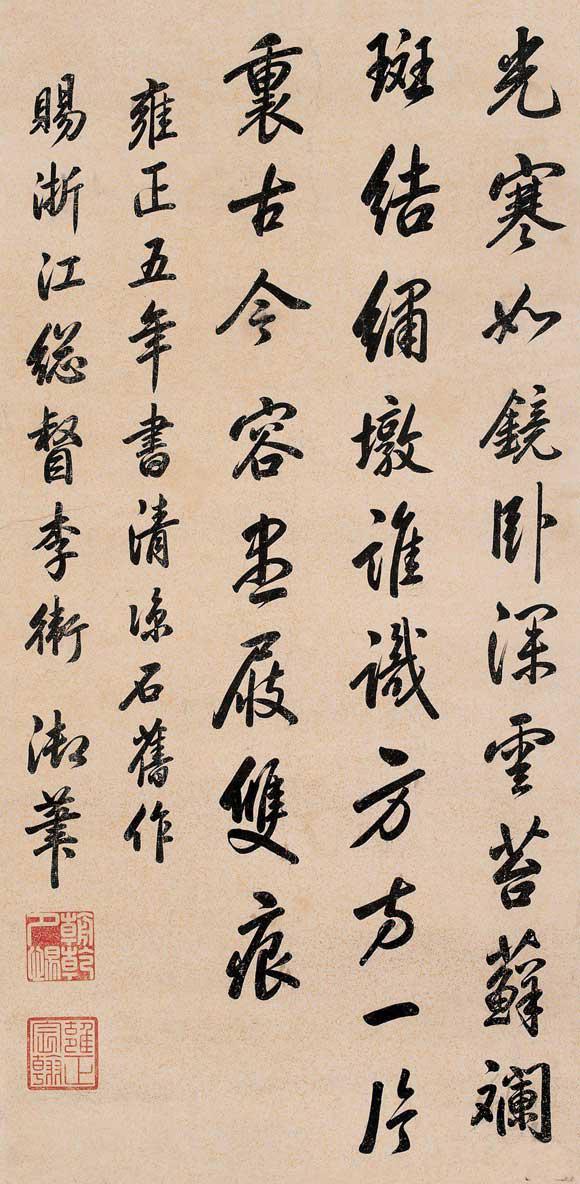 光寒如鏡卧深雲苔蘚斕
斑結繡墩誰識方方一片
裏古今容盡屐雙痕
雍正五年書清凉石舊作
賜浙江総督李衛 御筆
朝乾夕惕
雍正宸翰